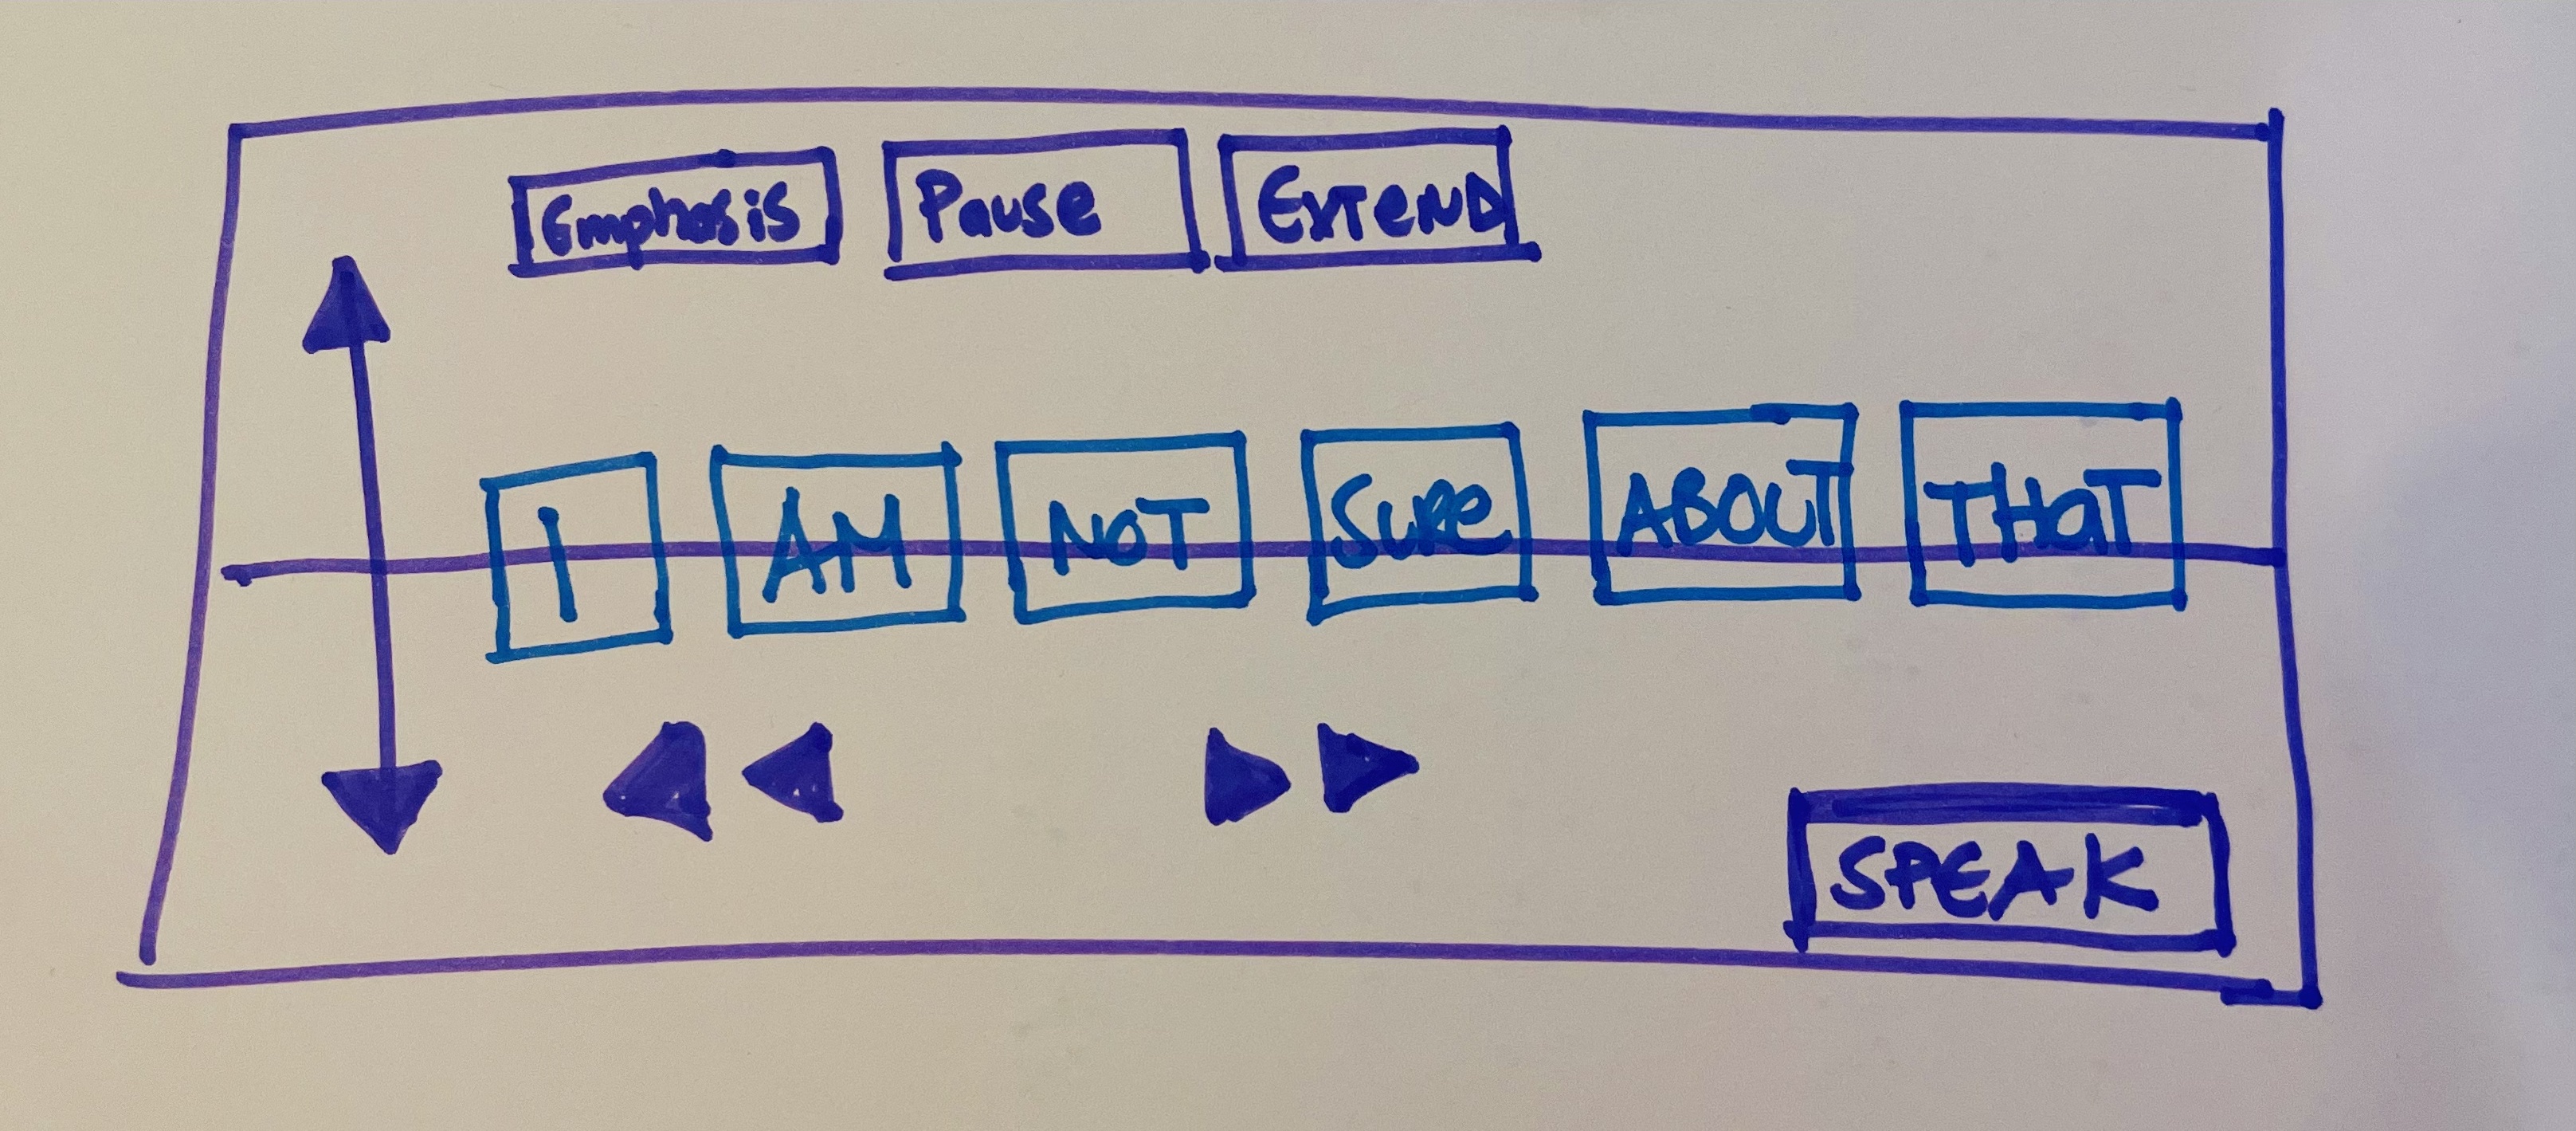 Emphasis Pause Extend
I AM NOT Sure ABOUT THaT
SPEAK